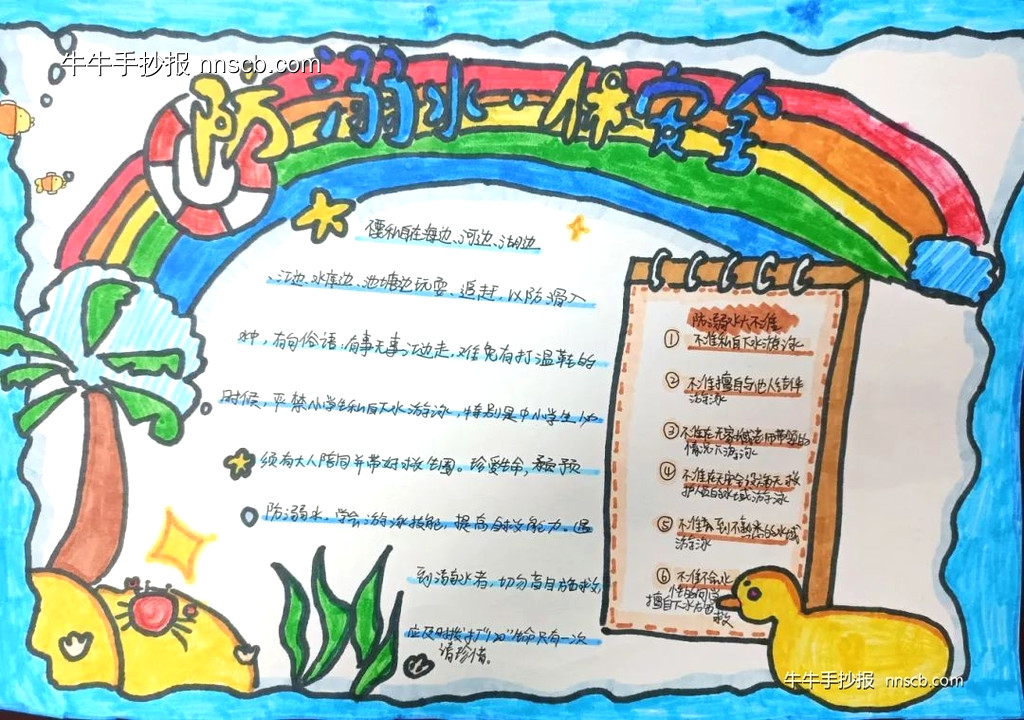 牛牛手抄报 nnscb.com
防溺水·保安全
私自在海边、河边、湖边
、江边、水库边、池塘边玩耍、追赶,以防滑入
水中,有句俗语:有事无事江边走,难免有打湿鞋的
时候,严禁小学生私自下水游泳,特别是中小学生必
须有大人陪同并带好救生圈。珍爱生命,预
防溺水,学会游泳技能,提高自救能力。遇
到溺水者,切勿盲目施救
应及时拨打"120"生命只有一次
请珍惜。
防溺水六不准
① 不准私自下水游泳
② 不准擅自与他人结伴
游泳
③ 不准在无家长或老师带领的
情况下游泳
④ 不准在无安全设施无救
护人员的水域游泳
⑤ 不准到不熟悉的水域
游泳
⑥ 不准不会水
性的同学
擅自下水施救
牛牛手抄报 nnscb.com